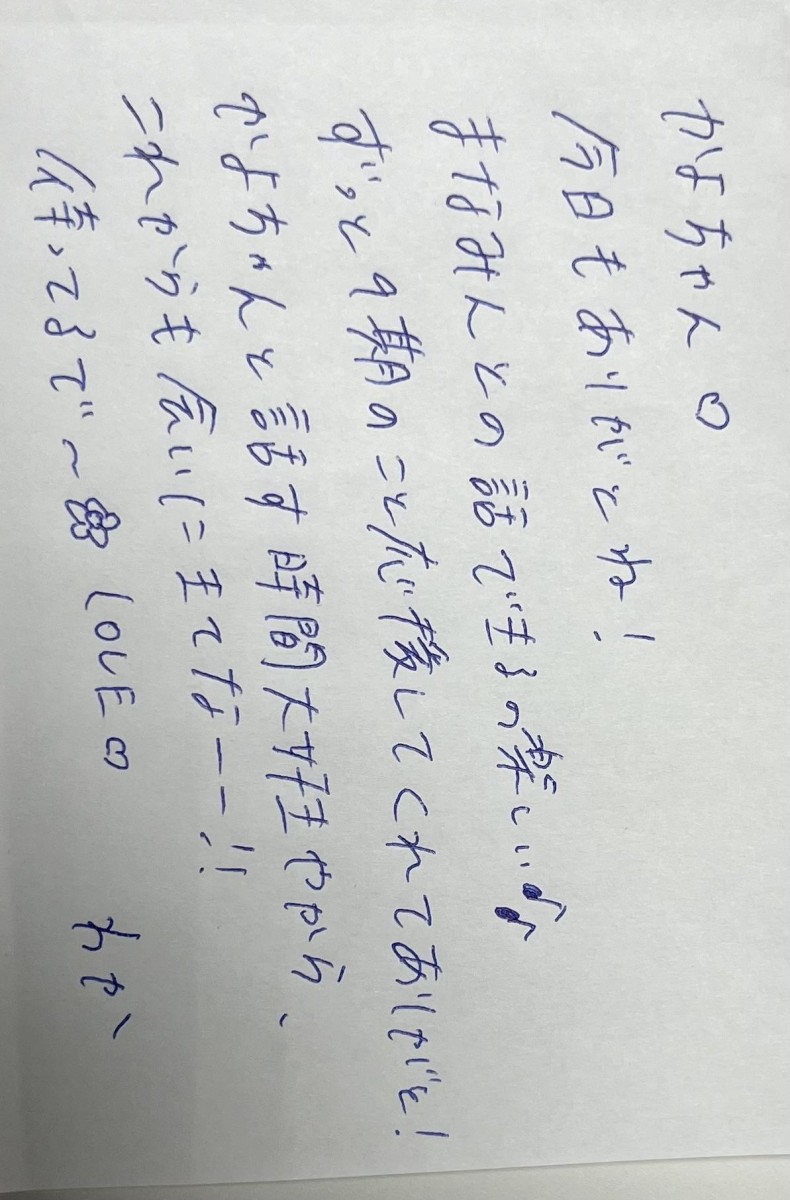 かよちゃん♡
今日もありがとね!
まなみんとの話できるの楽しい♪♪
ずっと9期のこと応援してくれてありがと!
かよちゃんと話す時間大好きやから、
これからも会いにきてなーー!!
待ってるで〜 LOVE♡
わか